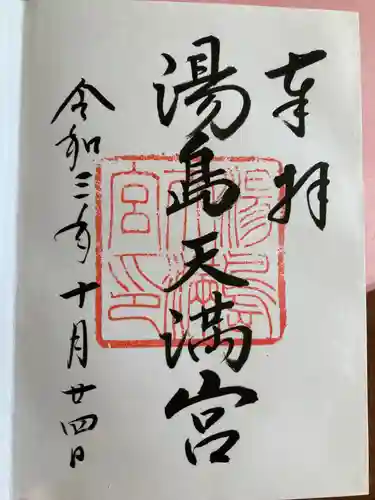 奉拝
湯島天満宮
令和三年十月廿四日
湯島
天満
宮印